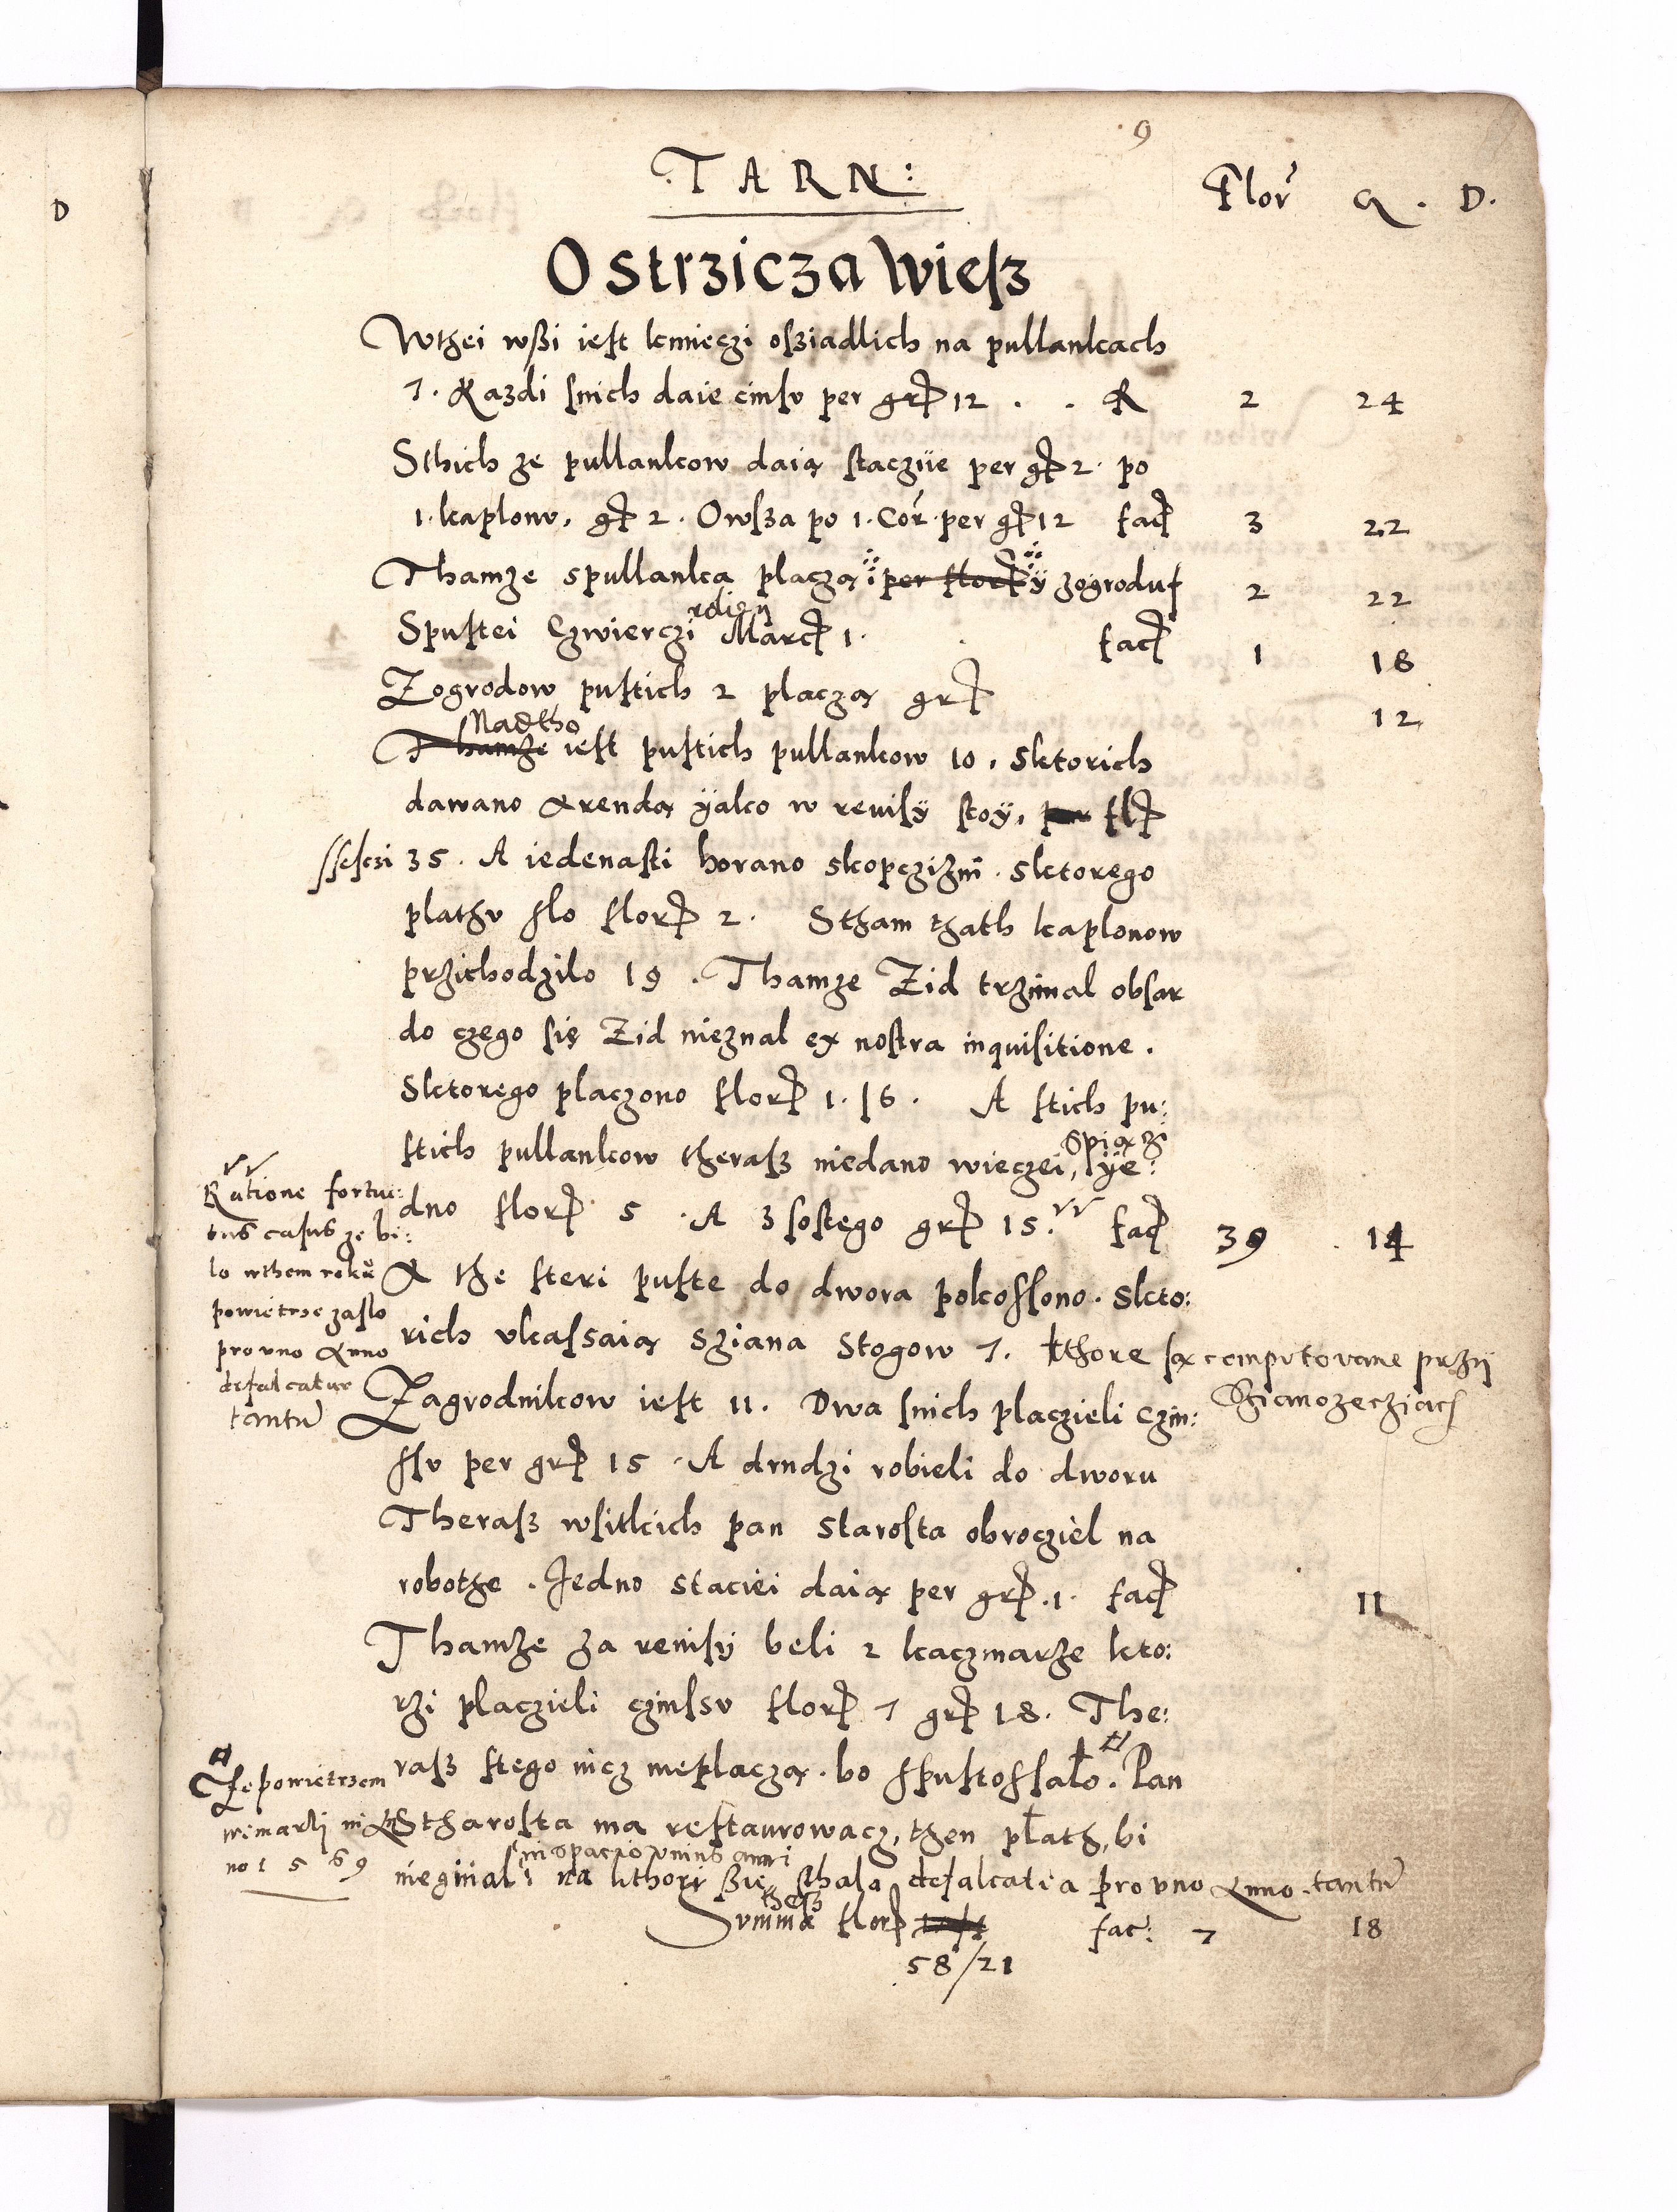 D
9
TARN:
Flor G. D.
Ostrzicza wiesz
Wthei wßi iest kmieczi osziadlich na pullankach
7. Kazdi snich daie cinsv per gr 12 . . R 2 24
Sthich ze pullankow daią staczÿe per g 2. po
1. kaplonv, g 2. Owsza po 1. Cor. per g 12 fac 3 22
Thamze spullanka placzą i per flor ÿ zogroduf 2 22
Spustei Czwierczi rdion Marc 1. fac 1 18
Zogrodow pustich 2 placzą gr 12
Nadtho
Thamze iest pustich pullankow 10, sktorich
dawano Arendą ÿako w reuisÿ stoÿ, per fl
35. A iedenasti horano skopczizni. sktorego
plathv slo flor 2. Stham thath kaplonow
przichodzilo 19. Thamze Zid trzimal obsar
do czego się Zid nieznal ex nostra inquisitione.
Sktorego placzono flor 1. 16. A stich pu:
stich pullankow therasz niedano wieczei, Spiąrzi ÿe:
dno flor 5. A 3 sostego gr 15. fac 39 14
Ratione fortui:
tus casus ze bi:
lo wthem roku
powietrze zaslo
pro vno Anno
defalcatur
tantum
A the steri puste do dwora pokossono. skto:
rich vkassaią sziana Stogow 7. kthore są computowane przÿ
Sianozecziach
Zagrodnikow iest 11. Dwa snich placzieli Czin:
ssv per gr 15. A drudzi robieli do dworu
Therasz wsitkich pan starosta obrocziel na
robothe. Jedno staciei daią per gr. 1. fac 11
Thamze za reuisÿ beli 2 kaczmarze kto:
rzi placzieli czinssv flor 7 gr 18. The:
rasz stego nicz nieplaczą. bo spustossało. Pan
Stharosta ma restaurowacz, then płath, bi
nieginal in spacio vnius anni na kthori Sie sthala defalcatia pro vno Anno. tantum
Ze powietrzem
wimarli in An
no 1569
Summa thesz flor fac: 7 18
58/21